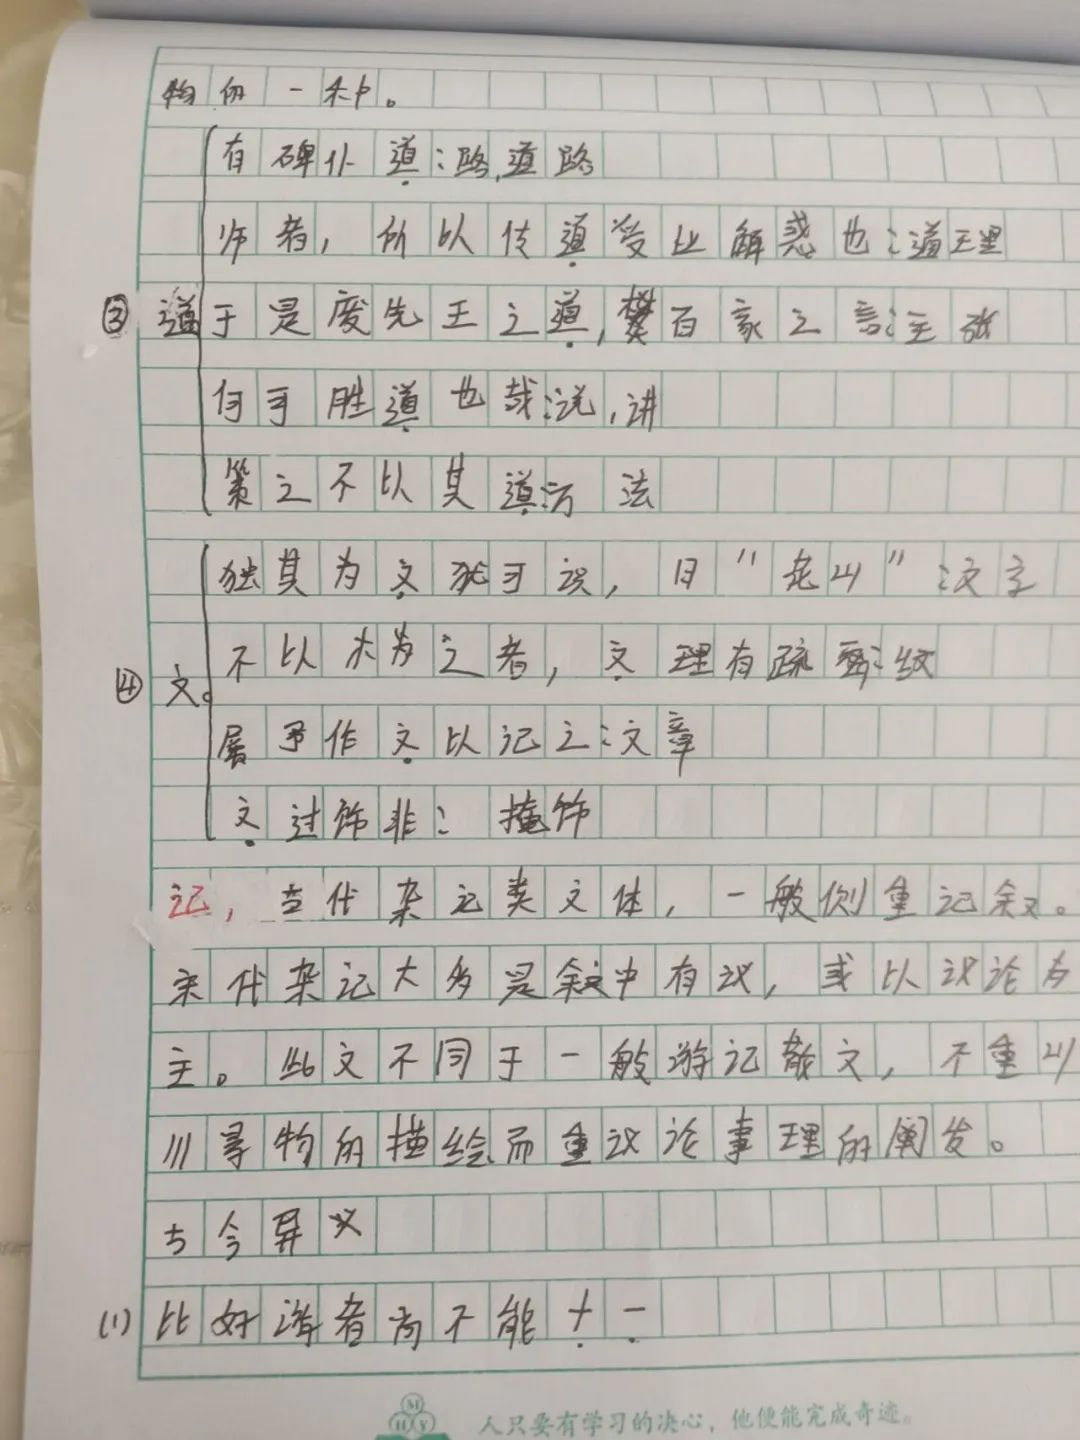 物的一种。
有碑仆道:路,道路
师者,所以传道受业解惑也:道理
③ 道 于是废先王之道,焚百家之言:主张
何可胜道也哉:说,讲
策之不以其道:方法
独其为文犹可识,曰"花山":文字
不以木为之者,文理有疏密:纹
④ 文。
属予作文以记之:文章
文过饰非:掩饰
记,古代杂记类文体,一般侧重记叙。
宋代杂记大多是叙中有议,或以议论为
主。此文不同于一般游记散文,不重山
川寻物的描绘而重议论事理的阐发。
古今异义
(1) 比好游者尚不能十一
MHY
人只要有学习的决心,他便能完成奇迹。